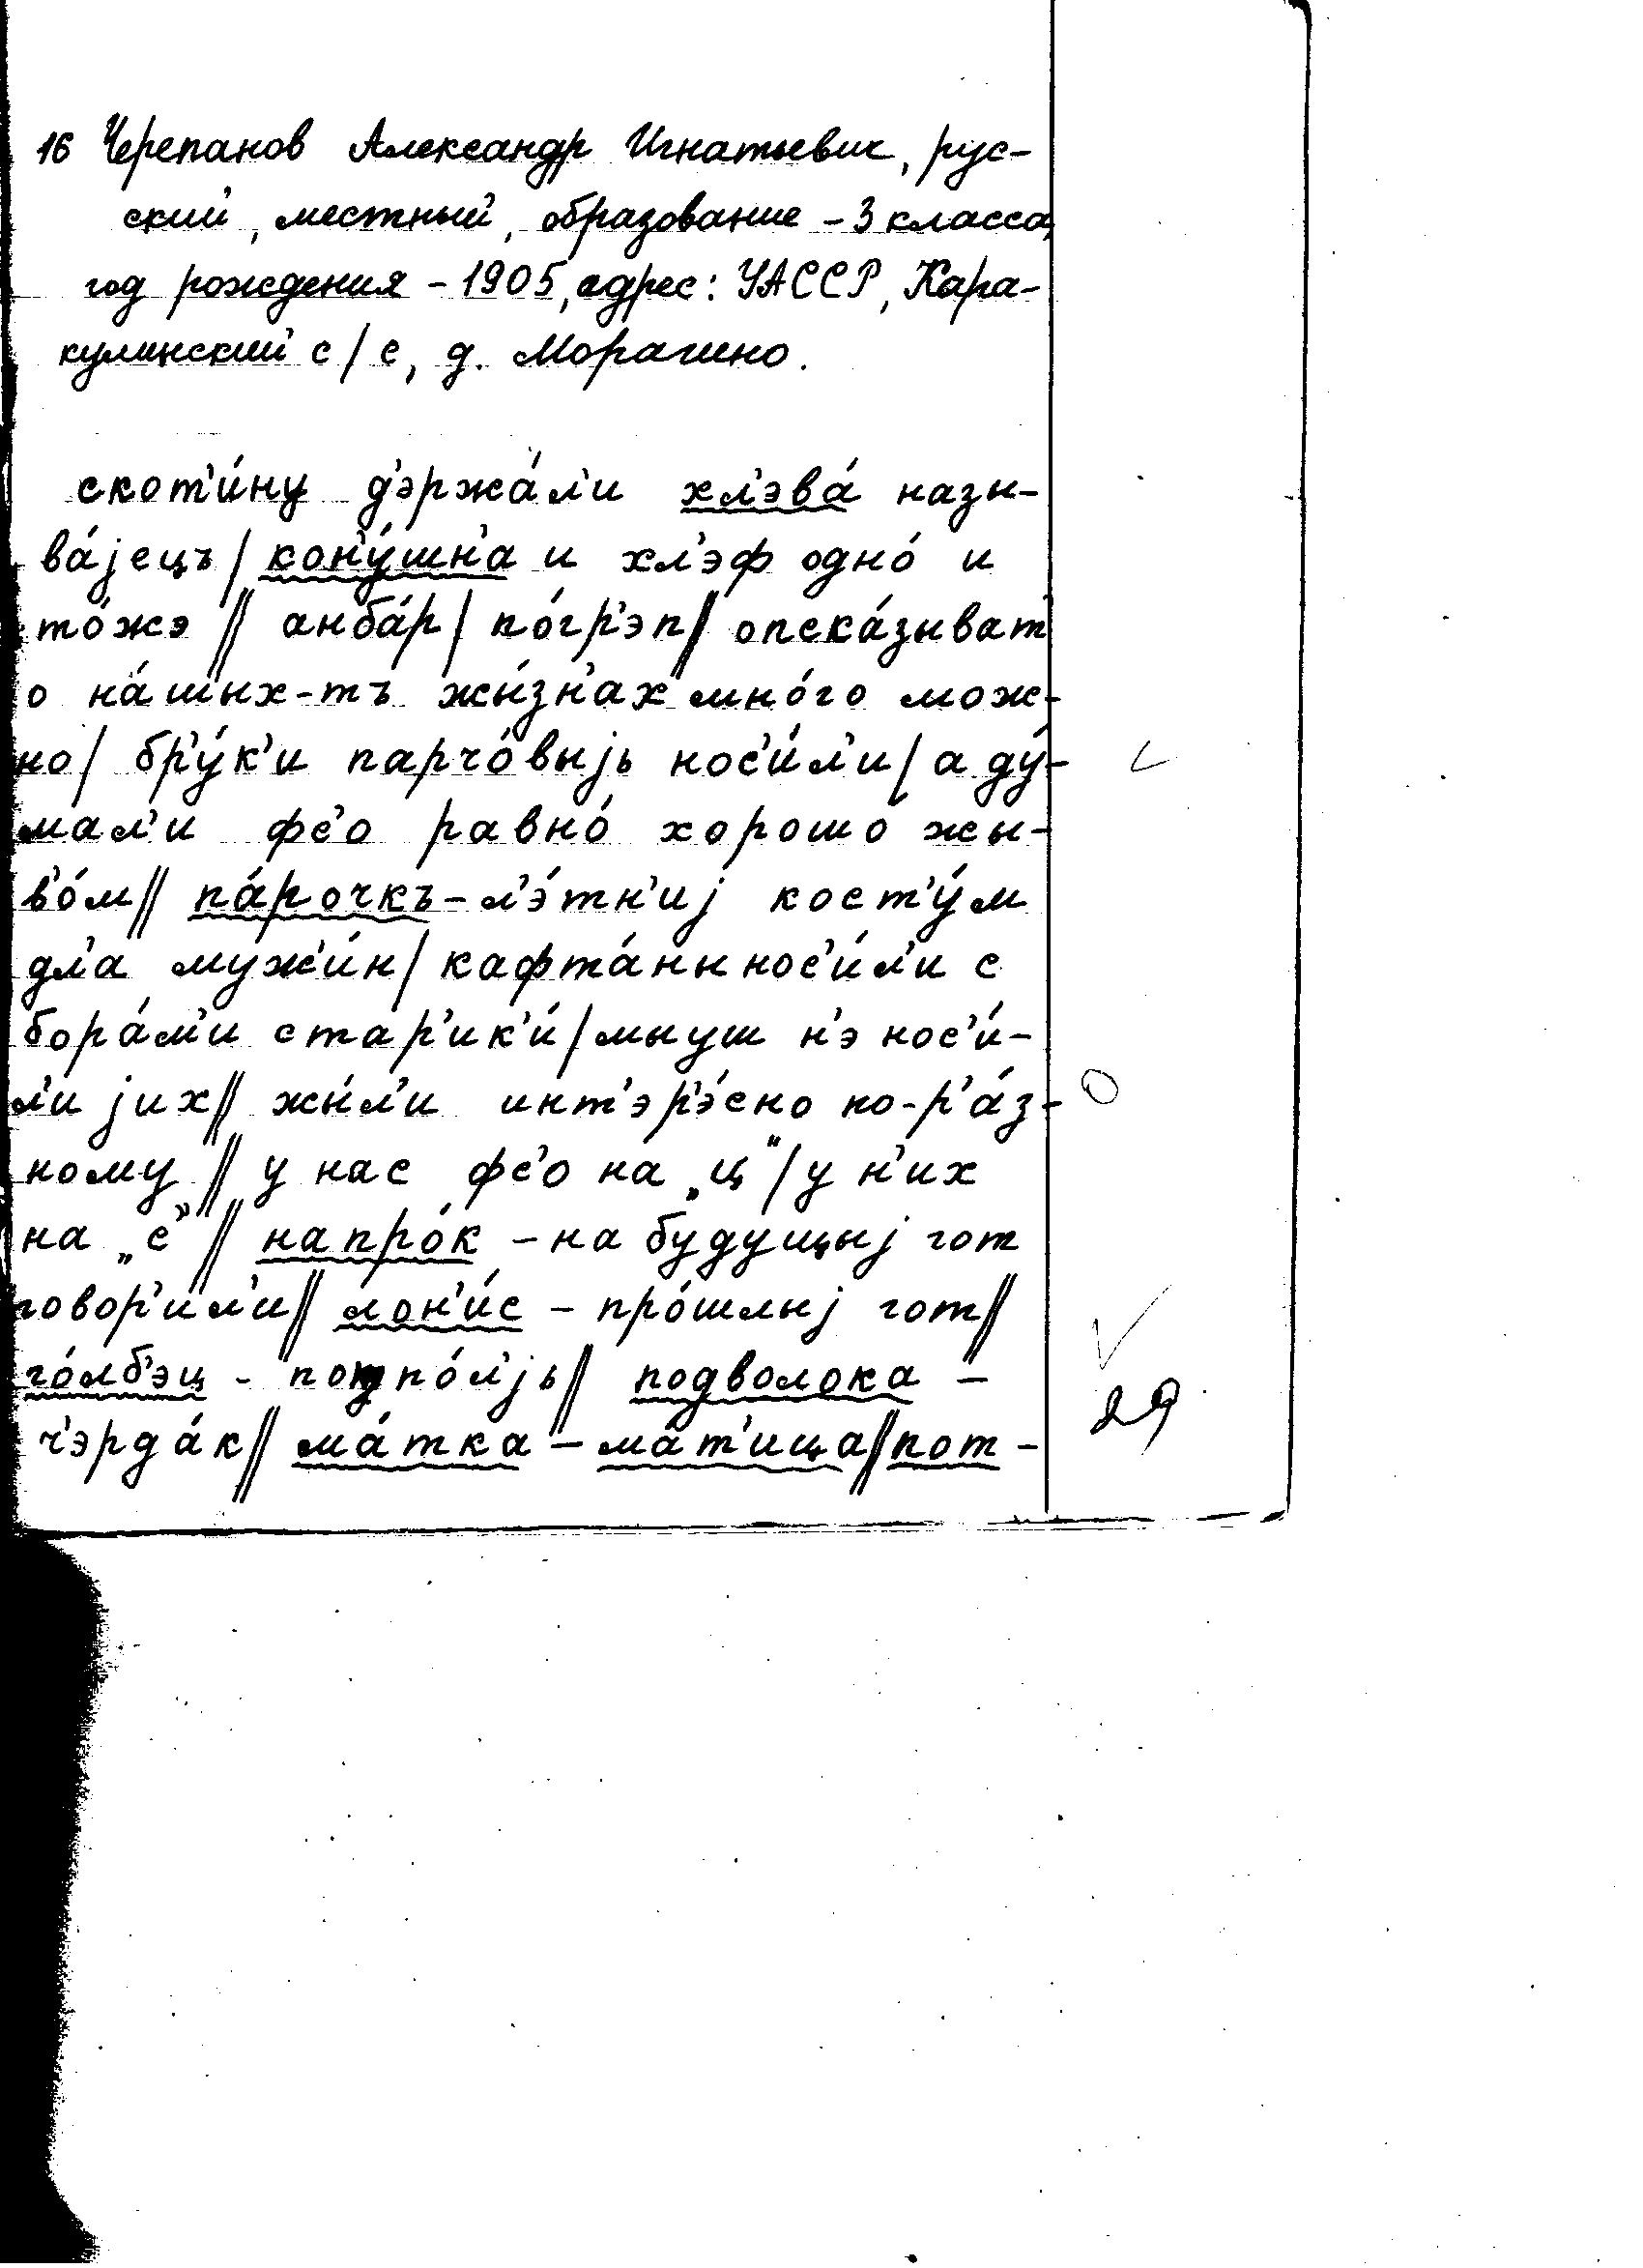 16 Черепанов Александр Игнатьевич, рус-
ский, местный, образование - 3 класса,
год рождения - 1905, адрес: УАССР, Кара-
кулинский с/с, д. Морагино.
скот'и́ну д'эржа́л'и хл'эва́ назы-
ва́jецъ / кон'у́шн'а и хл'эф одно́ и
то́жэ // анба́р / по́гр'эп // опска́зыват
о на́шых-тъ жы́зн'ах мно́го мож-
но / бр'у́к'и парчо́выjь нос'и́л'и / а ду́-
мал'и фс'о равно́ хорошо́ жы-
в'о́м // па́рочкъ - л'э́тн'иj кост'у́м
дл'а мужи́н / кафта́ны нос'и́л'и с
бора́м'и стар'ик'и́ / мы уш н'э нос'и́-
л'и jих // жы́л'и инт'эр'э́сно по-р'а́з-
ному // у нас фс'о на „ц“ / у н'их
на „с“ // напро́к - на будущыj гот
говор'и́л'и // лон'и́с - про́шлыj гот //
го́лб'эц - потпо́л'jь // подволока -
ч'эрда́к // ма́тка - ма́т'ица // пот-
29